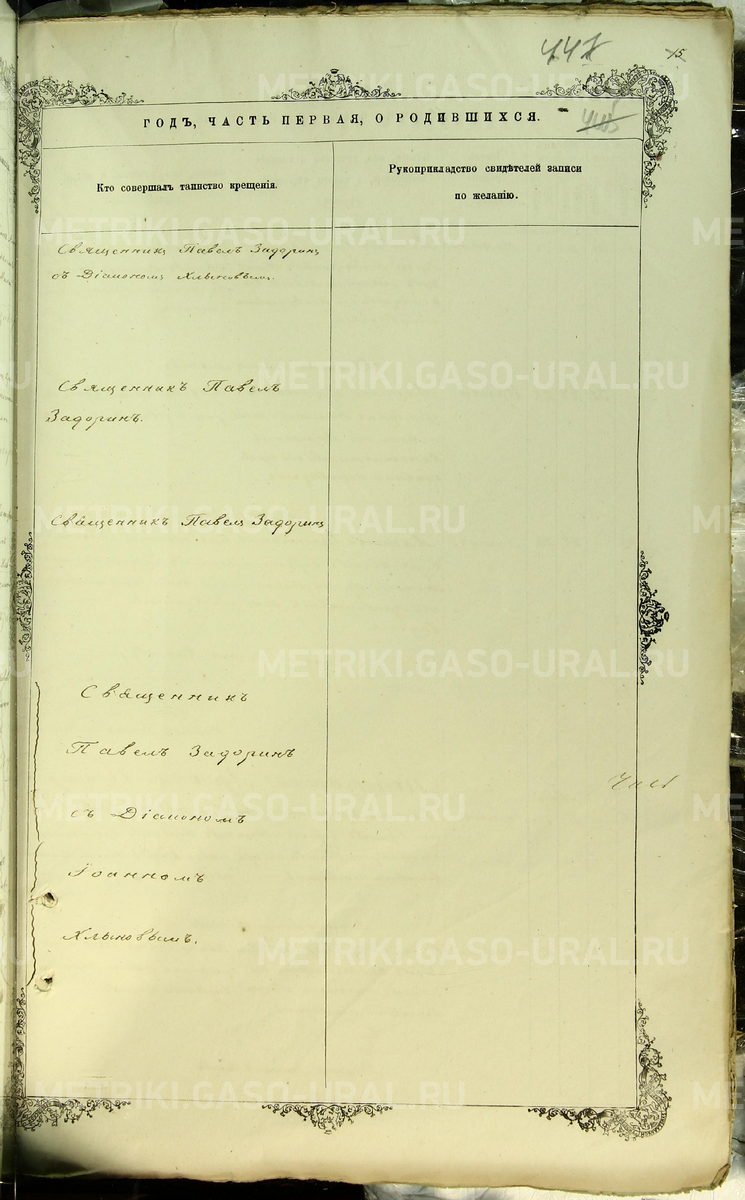 447
15
ГОДЪ, ЧАСТЬ ПЕРВАЯ, О РОДИВШИХСЯ.
Кто совершалъ таинство крещенія.
Рукоприкладство свидѣтелей записи
по желанію.
Священникъ Павелъ Задоринъ
съ Діакономъ Хлыновымъ.
Священникъ Павелъ
Задоринъ.
Священникъ Павелъ Задоринъ
Священникъ
Павелъ Задоринъ
съ Діакономъ
Іоанномъ
Хлыновымъ.
METRIKI.GASO-URAL.RU